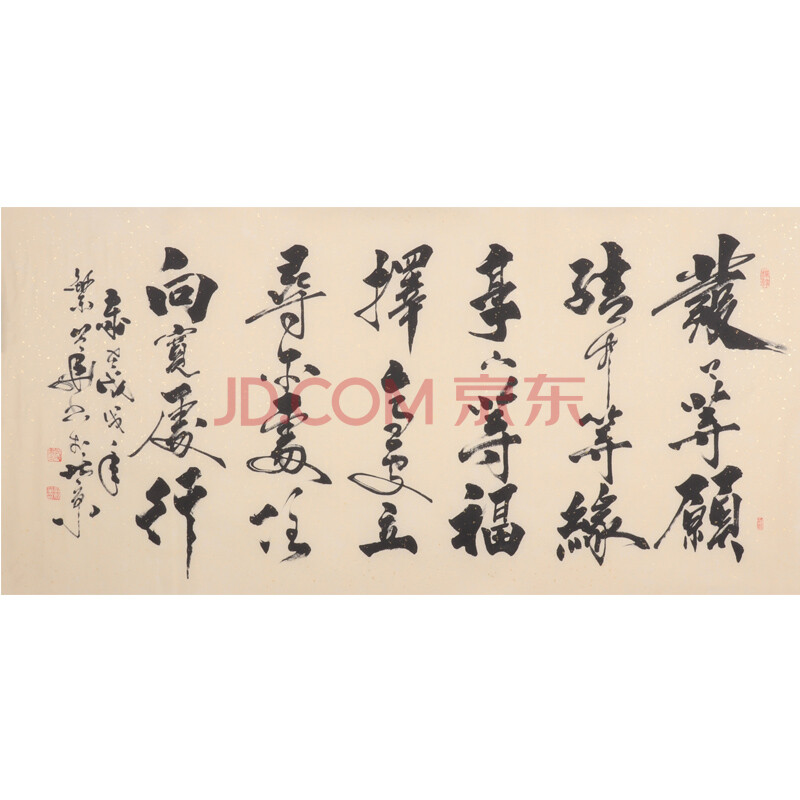 發上等願
結中等緣
享下等福
擇高處立
尋平處住
向寬處行
JD.COM 京东